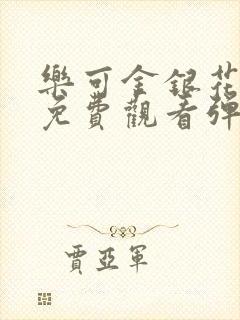 樂可金銀花
免費觀看彈
賈亞軍